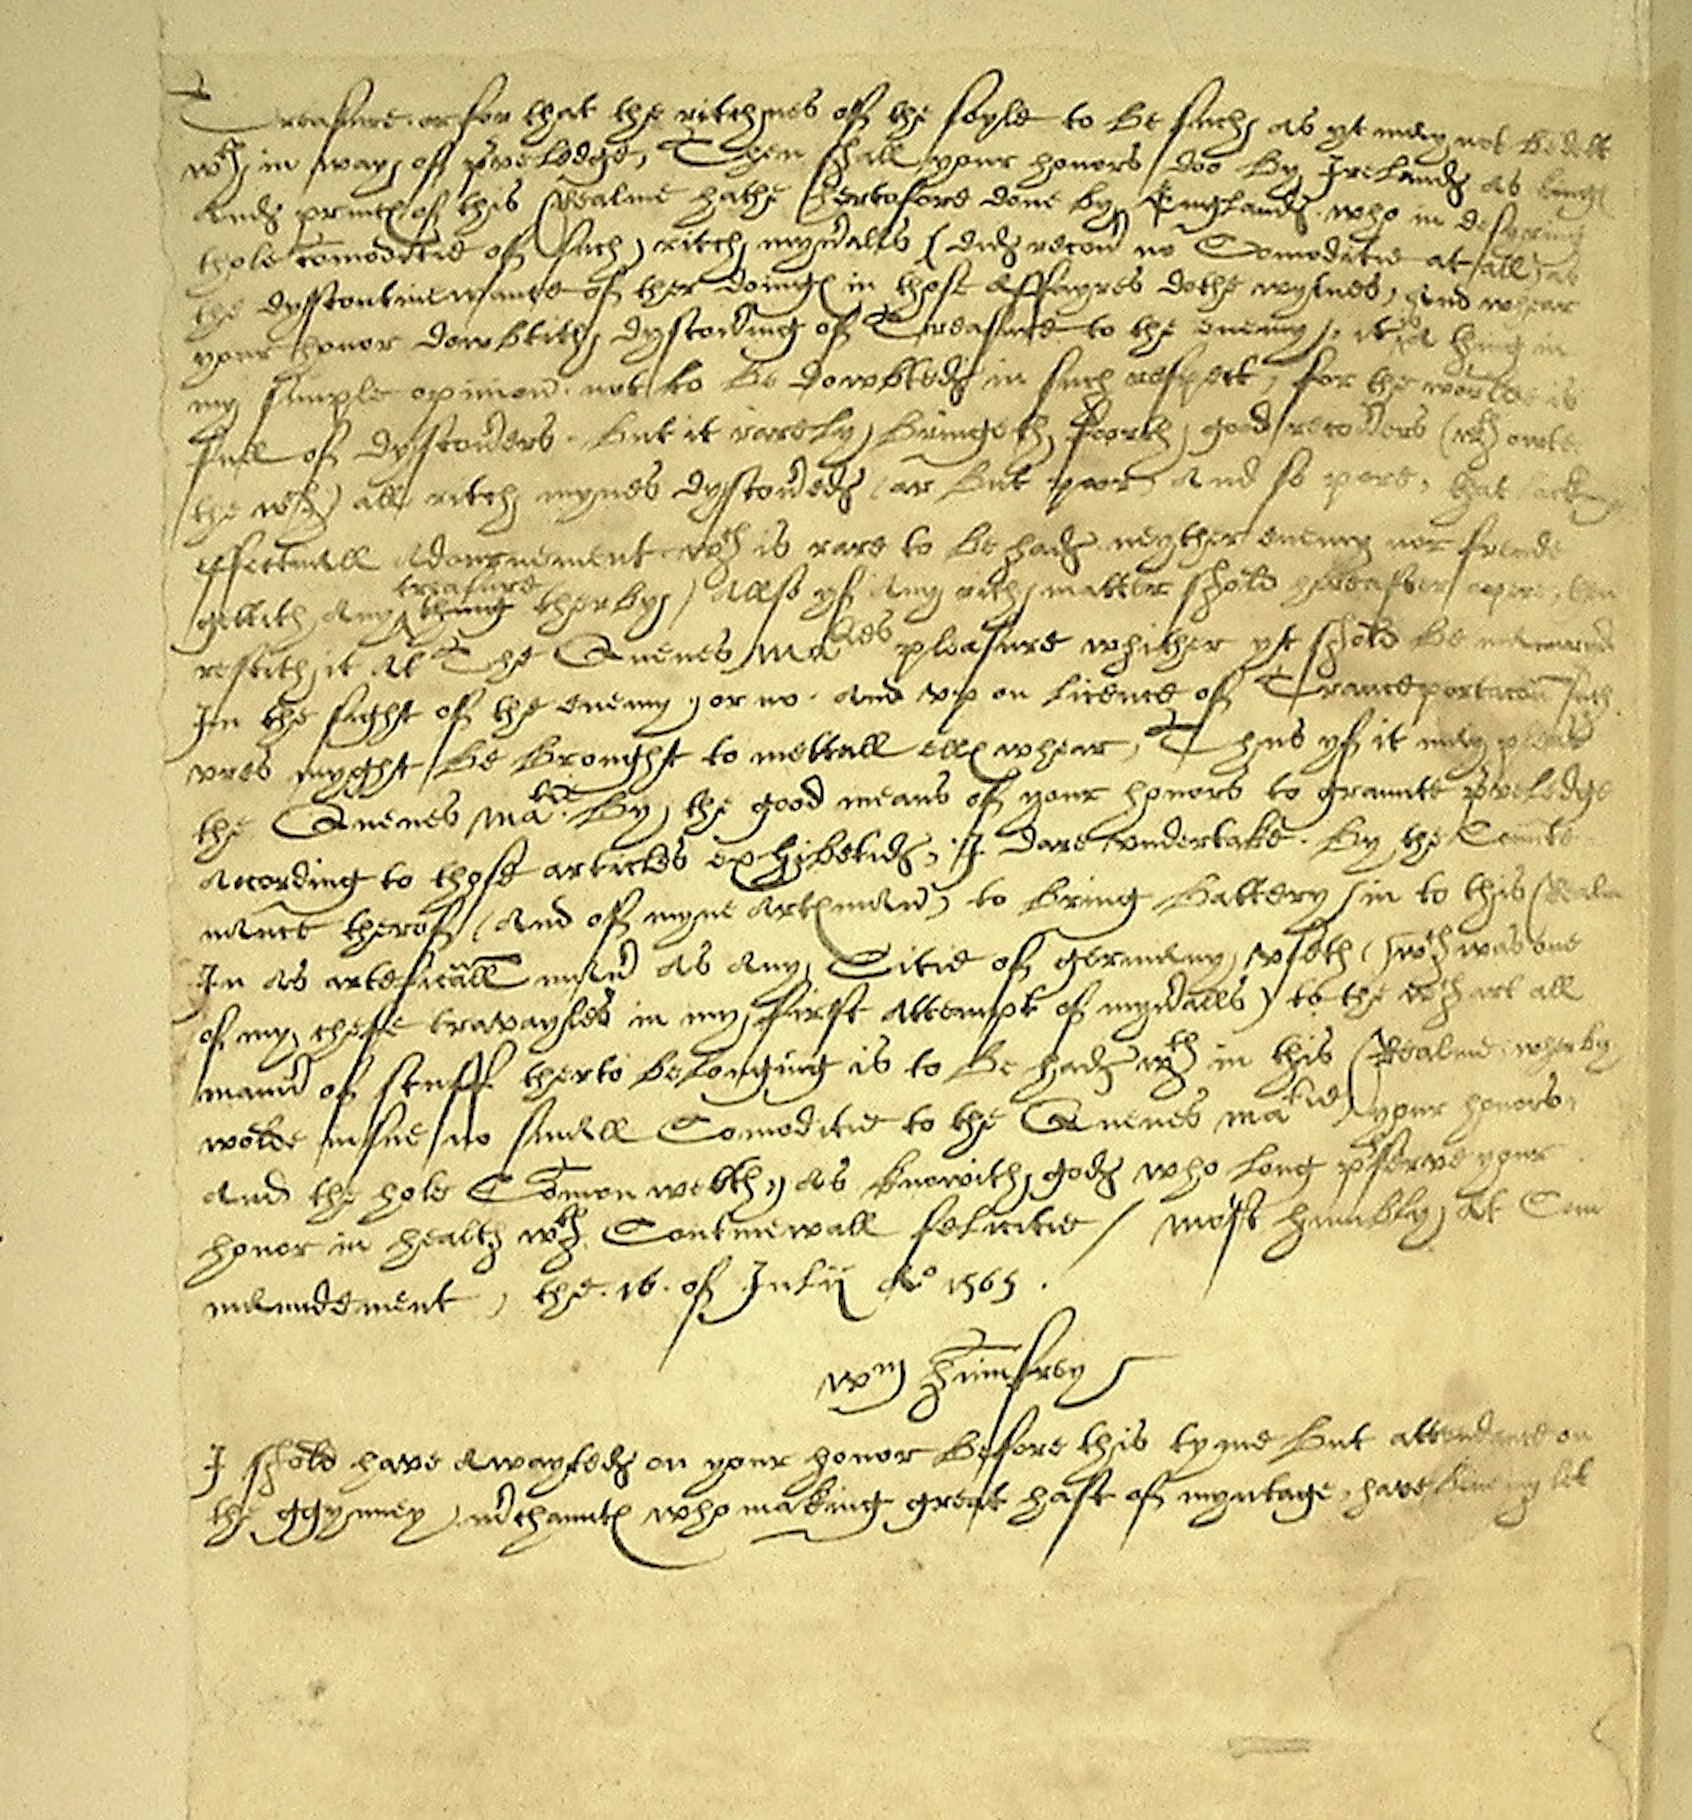 Treasure. or for that the ritchnes of the soyle to be such, as yt may not be delt
wth, in way of pveledge, Then shall your honors doo by Ireland as kinges
And princes of this Realme hathe hertofore done by England. who in desyering
thole comoditie of such, ritch, myn'alls (did recou' no Comoditie at all) as
the dyscontinewance of ther doinges in those affayres dothe wytnes, And whear
your honor dowbtith, dyscou'ing of Treasure to the enemy, it is A thing in
my simple opinion. not to be dowbted in such respect, for the worlde is
full of dyscou'ers. but it rarely, bringeth, foorth, good recou'ers (wth owte
the wch) all ritch, mynes dyscou'ed (ar but poor And so pore, that lacking
effectuall Adournement wch is rare to be had neyther enemy nor frende
gettith Any thing treasure therby, Allso yf Any ritch, matter shold hereafter apere, then
restith, it At The Quenes maties pleasure whither yt shold be
In the sight of the enemy, or no. And vp on licence of Transportacon such
vres myght be brought to mettall elles whear, Thus yf it may please
the Quenes matie. by, the good means of your honors to graunte pveledge
Acording to those articles exhibetid, I dare vndertake. by the Counte
nance therof (And of myne Artes man', to bring Battery in to this Realme
In As arteficall man' As Any Citie of germany, vseth (wch was one
of my, cheffe travayles in my, first Attempt of myn'alls) to the wch art all
man' of stuff therto belonging is to be had wth in this Realme. wherby
wolde insue no small Comoditie to the Quenes matie your honors,
And the hole Comon welth, As knowith, god who long pserve your
honor in health wth Contnewall felicitie / most humbly, At Com
maundement, the. 16. of Julij Ao 1565.
Wm Humfrey
I shold have Awayted on your honor before this tyme but attendance on
the ggynney, m'chauntes who making great hast of myntage, have bene my let